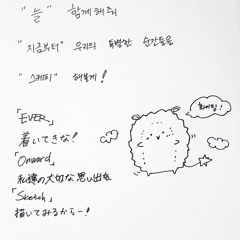 "늘" 함께해줘
"지금부터" 우리의 특별한 순간들을
"스케치" 해볼게!
「EVER」
着いてきな!
「Onword」
私達の大切な思い出を
「Sketch」
描いてみるからー!
화이팅!